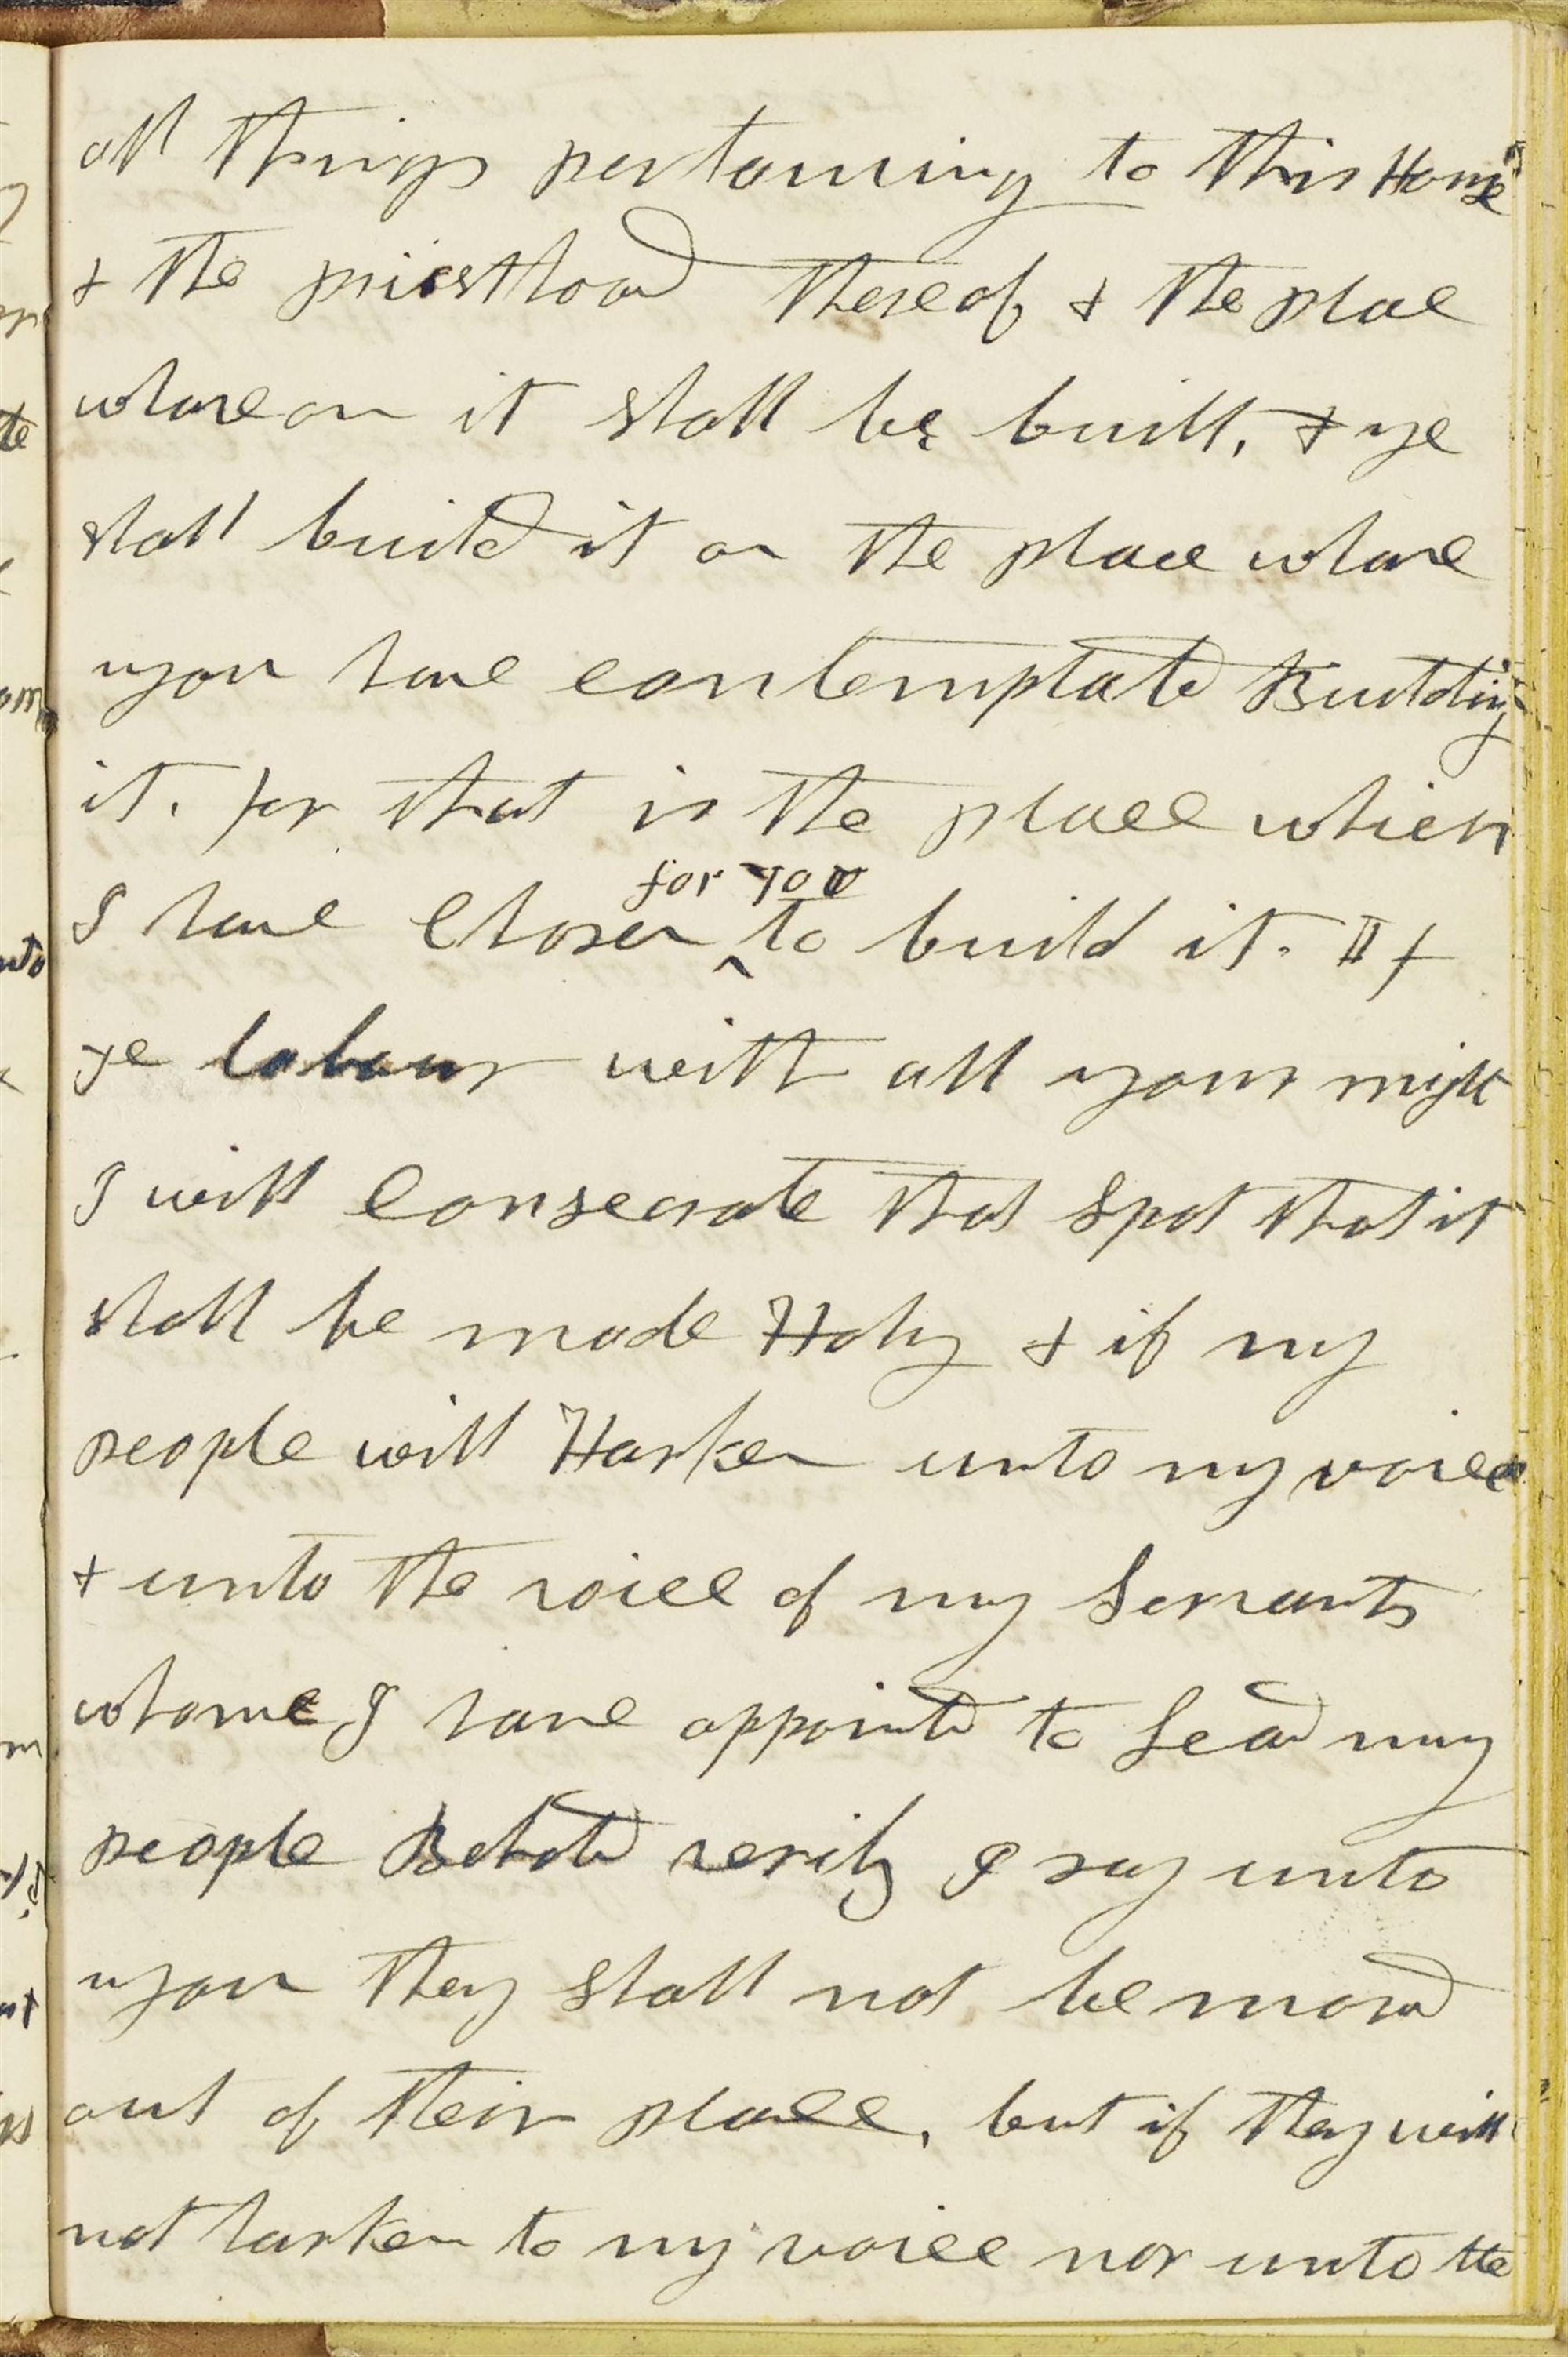 all things pertaining to this House
& the priesthood thereof & the place
whareon it shall be built, & ye
shall build it on the place whare
you have contemplated Building
it. for that is the place which
for you
I have Chosen ^ to build it. If
ye labour with all your might
I will Consecrate that spot that it
shall be made Holy & if my
people will Harken unto my voice
& unto the voice of my Servants
whome I have appointed to Lead my
people Behold verily I say unto
you they shall not be moved
out of their place, but if they will
not harken to my voice nor unto the